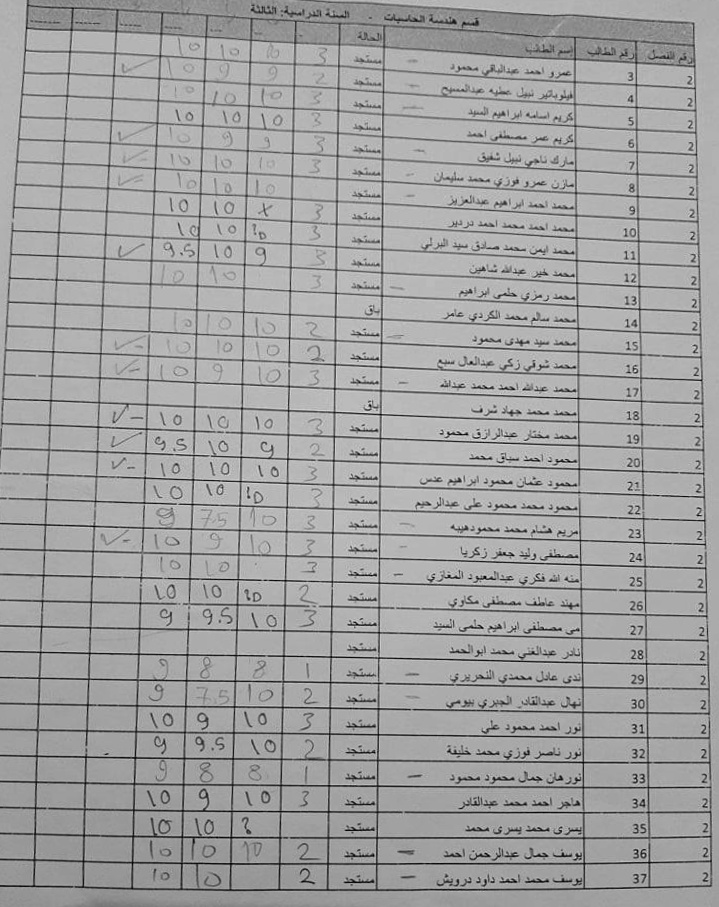 قسم هندسة الحاسبات - السنة الدراسية: الثالثة
رقم الفصل رقم الطالب إسم الطالب الحالة
2 3 عمرو احمد عبدالباقي محمود – مستجد 3 10 10 10
2 4 فيلوباتير نبيل عطيه عبدالمسيح – مستجد 2 9 9 10 ✓
2 5 كريم اسامه ابراهيم السيد – مستجد 3 10 10 10
2 6 كريم عمر مصطفى احمد مستجد 3 10 10 10
2 7 مارك ناجي نبيل شفيق – مستجد 3 9 9 10 ✓
2 8 مازن عمرو فوزي محمد سليمان – مستجد 3 10 10 10 ✓-
2 9 محمد احمد ابراهيم عبدالعزيز – مستجد 10 10 10 ✓-
2 10 محمد احمد محمد احمد دردير مستجد 3 x 10 10
2 11 محمد ايمن محمد صادق سيد البرلي مستجد 3 10 10
2 12 محمد خير عبدالله شاهين مستجد 3 9 10 9.5 ✓
2 13 محمد رمزي حلمى ابراهيم – مستجد 3 10 10
2 14 محمد سالم محمد الكردي عامر باق
2 15 محمد سيد مهدى محمود – مستجد 2 10 10 10
2 16 محمد شوقي زكي عبدالعال سبع مستجد 2 10 10 10 ✓-
2 17 محمد عبدالله احمد محمد عبدالله – مستجد 3 10 9 10 ✓-
2 18 محمد محمد جهاد شرف باق
2 19 محمد مختار عبدالرازق محمود مستجد 3 10 10 10 ✓-
2 20 محمود احمد سباق محمد مستجد 2 9 10 9.5 ✓
2 21 محمود عثمان محمود ابراهيم عدس مستجد 3 10 10 10 ✓-
2 22 محمود محمد محمود على عبدالرحيم مستجد 3 10 10
2 23 مريم هشام محمد محمودهيبه – مستجد 3 10 7.5 9
2 24 مصطفى وليد جعفر زكريا – مستجد 3 10 9 10 ✓-
2 25 منه الله فكري عبدالمعبود المغازي – مستجد 3 10 10
2 26 مهند عاطف مصطفى مكاوي مستجد 2 10 10
2 27 مى مصطفى ابراهيم حلمى السيد مستجد 3 10 9.5 9
2 28 نادر عبدالغني محمد ابوالحمد مستجد
2 29 ندى عادل محمدي النحريري – مستجد 1 8 8 9
2 30 نهال عبدالقادر الجبري بيومي – مستجد 2 10 7.5 9
2 31 نور احمد محمود علي مستجد 3 10 9 10
2 32 نور ناصر فوزي محمد خليفة مستجد 2 10 9.5 9
2 33 نورهان جمال محمود محمود – مستجد 1 8 8 9
2 34 هاجر احمد محمد عبدالقادر مستجد 3 10 9 10
2 35 يسرى محمد يسرى محمد مستجد ? 10 10
2 36 يوسف جمال عبدالرحمن احمد – مستجد 2 10 10 10
2 37 يوسف محمد احمد داود درويش – مستجد 2 10 10